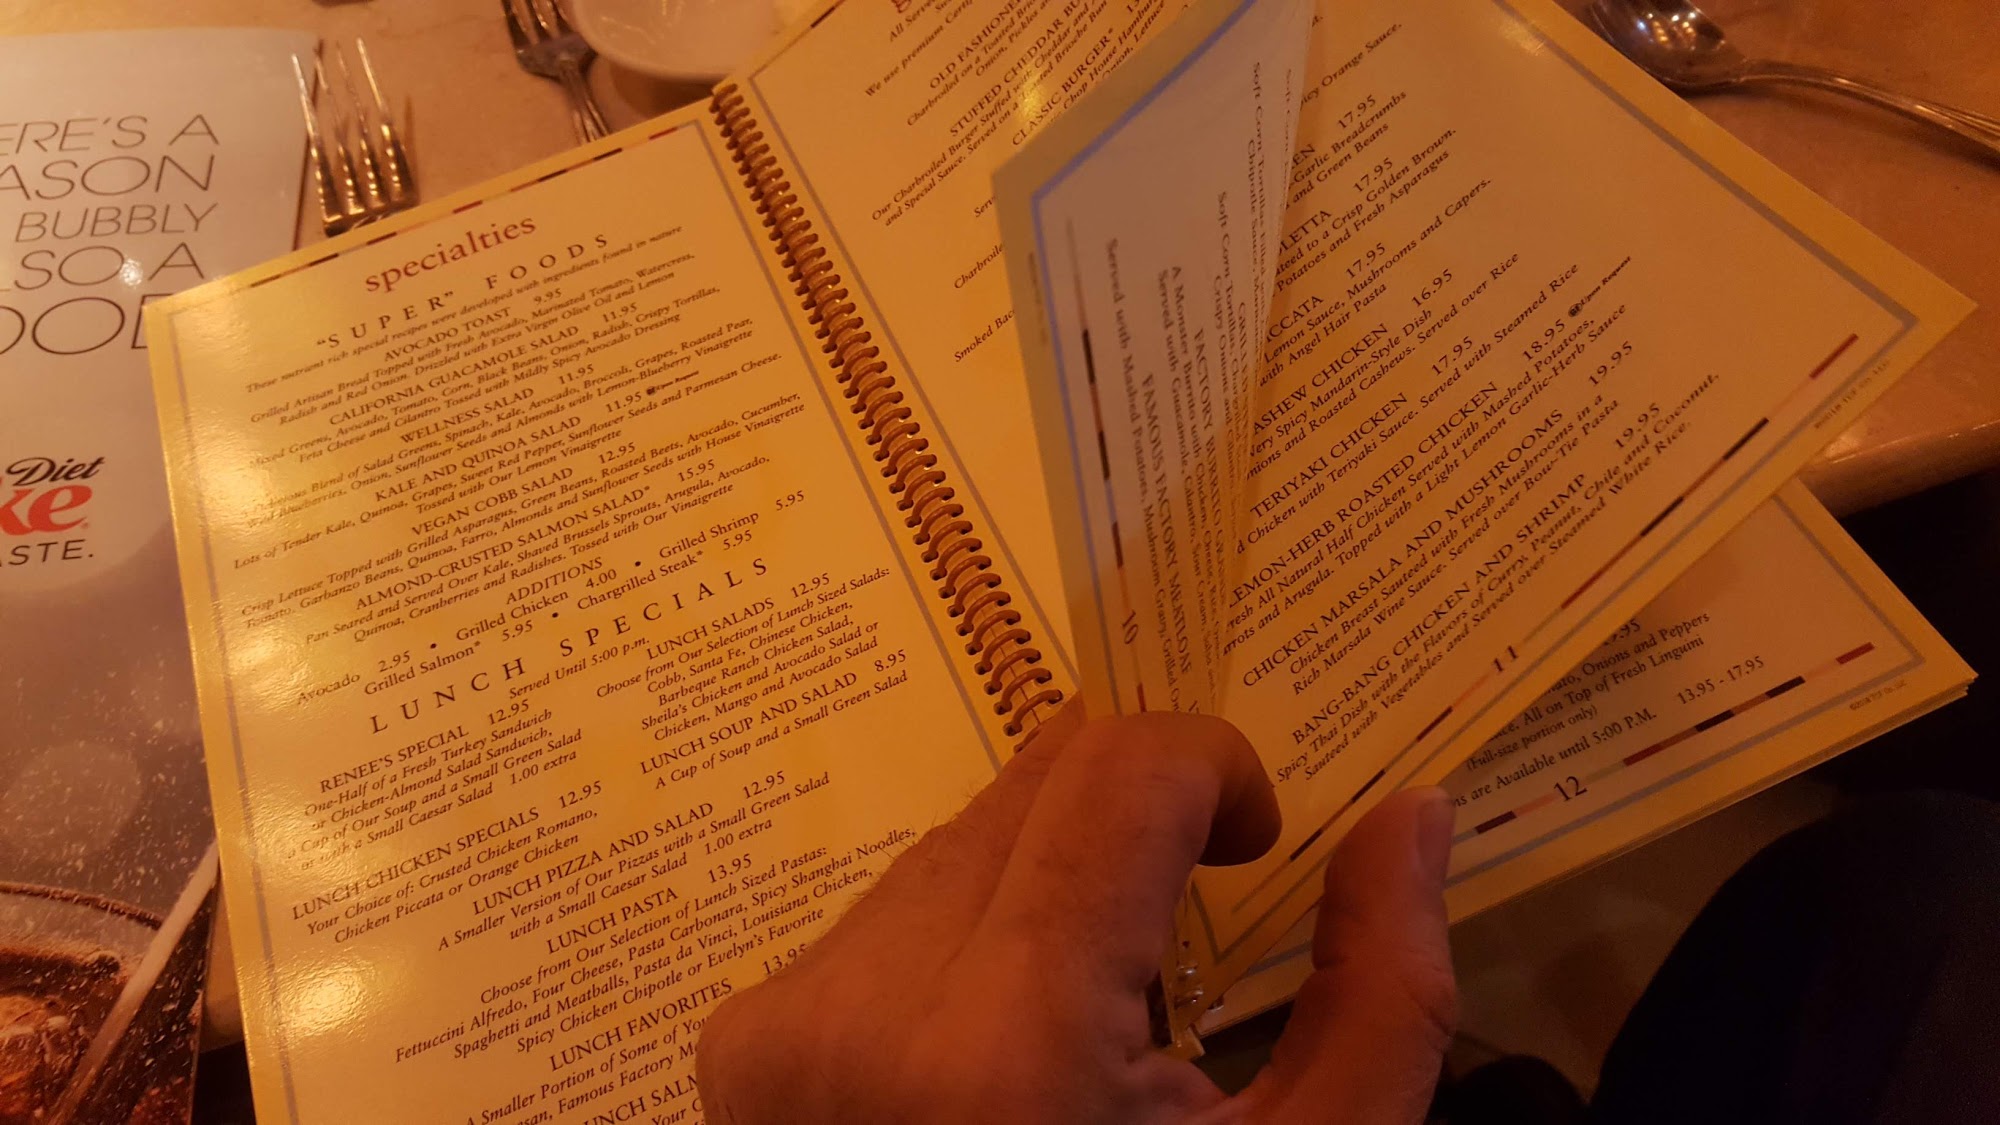 ERE'S A
ASON
BUBBLY
LSO A
OOD
Diet
ke
ASTE.
specialties
"SUPER" FOODS
These nutrient rich special recipes were developed with ingredients found in nature
AVOCADO TOAST 9.95
Grilled Artisan Bread Topped with Fresh Avocado, Marinated Tomato, Watercress,
Radish and Red Onion. Drizzled with Extra Virgin Olive Oil and Lemon
CALIFORNIA GUACAMOLE SALAD 11.95
Mixed Greens, Avocado, Tomato, Corn, Black Beans, Onion, Radish, Crispy Tortillas,
Feta Cheese and Cilantro Tossed with Mildly Spicy Avocado Dressing
WELLNESS SALAD 11.95
Delicious Blend of Salad Greens, Spinach, Kale, Avocado, Broccoli, Grapes, Roasted Pear,
Wild Blueberries, Onion, Sunflower Seeds and Almonds with Lemon-Blueberry Vinaigrette
KALE AND QUINOA SALAD 11.95 Upon Request
Lots of Tender Kale, Quinoa, Grapes, Sweet Red Pepper, Sunflower Seeds and Parmesan Cheese.
Tossed with Our Lemon Vinaigrette
VEGAN COBB SALAD 12.95
Crisp Lettuce Topped with Grilled Asparagus, Green Beans, Roasted Beets, Avocado, Cucumber,
Tomato, Garbanzo Beans, Quinoa, Farro, Almonds and Sunflower Seeds with House Vinaigrette
ALMOND-CRUSTED SALMON SALAD* 15.95
Pan Seared and Served Over Kale, Shaved Brussels Sprouts, Arugula, Avocado,
Quinoa, Cranberries and Radishes. Tossed with Our Vinaigrette
ADDITIONS
Avocado 2.95 • Grilled Chicken 4.00 • Grilled Shrimp 5.95
Grilled Salmon* 5.95 • Chargrilled Steak* 5.95
LUNCH SPECIALS
Served Until 5:00 p.m.
RENEE'S SPECIAL 12.95
One-Half of a Fresh Turkey Sandwich
or Chicken-Almond Salad Sandwich,
a Cup of Our Soup and a Small Green Salad
or with a Small Caesar Salad 1.00 extra
LUNCH SALADS 12.95
Choose from Our Selection of Lunch Sized Salads:
Cobb, Santa Fe, Chinese Chicken,
Barbeque Ranch Chicken Salad,
Sheila's Chicken and Avocado Salad or
Chicken, Mango and Avocado Salad
LUNCH SOUP AND SALAD 8.95
A Cup of Soup and a Small Green Salad
LUNCH CHICKEN SPECIALS 12.95
Your Choice of: Crusted Chicken Romano,
Chicken Piccata or Orange Chicken
LUNCH PIZZA AND SALAD 12.95
A Smaller Version of Our Pizzas with a Small Green Salad
with a Small Caesar Salad 1.00 extra
LUNCH PASTA 13.95
Choose from Our Selection of Lunch Sized Pastas:
Fettuccini Alfredo, Four Cheese, Pasta Carbonara, Spicy Shanghai Noodles,
Spaghetti and Meatballs, Pasta da Vinci, Louisiana Chicken,
Spicy Chicken Chipotle or Evelyn's Favorite
LUNCH FAVORITES 13.95
A Smaller Portion of Some of You
esan, Famous Factory Me
UNCH SALM
Your C
All Serv
We use premium Certi
OLD FASHIONE
Charbroiled on a Toasted Bri
Onion, Pickles an
STUFFED CHEDDAR BU
Our Charbroiled Burger Stuffed with Cheddar and
and Special Sauce. Served on a Toasted Brioche Bun
CLASSIC BURGER*
Chop House Hamburg
Onion, Lettuce
Serv
Charbroile
Smoked Bac
Soft Corn Tortillas Filled
Chipotle Sauce, Marin
Soft Corn Tortillas
Crispy Onions and Cilantro,
FACTORY BURRITO GRANDE
A Monster Burrito with Chicken, Cheese, Rice,
Served with Guacamole, Cilantro, Sour Cream, Salsa
FAMOUS FACTORY MEATLOAF
Served with Mashed Potatoes, Mushroom Gravy, Grilled On
10
icy Orange Sauce.
KEN 17.95
Garlic Breadcrumbs
and Green Beans
OLETTA 17.95
teed to a Crisp Golden Brown.
Potatoes and Fresh Asparagus
CCATA 17.95
Lemon Sauce, Mushrooms and Capers.
with Angel Hair Pasta
ASHEW CHICKEN 16.95
Very Spicy Mandarin-Style Dish
nions and Roasted Cashews. Served over Rice
TERIYAKI CHICKEN 17.95
d Chicken with Teriyaki Sauce. Served with Steamed Rice
LEMON-HERB ROASTED CHICKEN 18.95 Upon Request
Fresh All Natural Half Chicken Served with Mashed Potatoes,
rrots and Arugula. Topped with a Light Lemon Garlic-Herb Sauce
CHICKEN MARSALA AND MUSHROOMS 19.95
Chicken Breast Sauteed with Fresh Mushrooms in a
Rich Marsala Wine Sauce. Served over Bow-Tie Pasta
BANG-BANG CHICKEN AND SHRIMP 19.95
A Spicy Thai Dish with the Flavors of Curry, Peanut, Chile and Coconut.
Sauteed with Vegetables and Served over Steamed White Rice.
11
mato, Onions and Peppers
uce. All on Top of Fresh Linguni
(Full-size portion only)
ns are Available until 5:00 P.M. 13.95 - 17.95
12